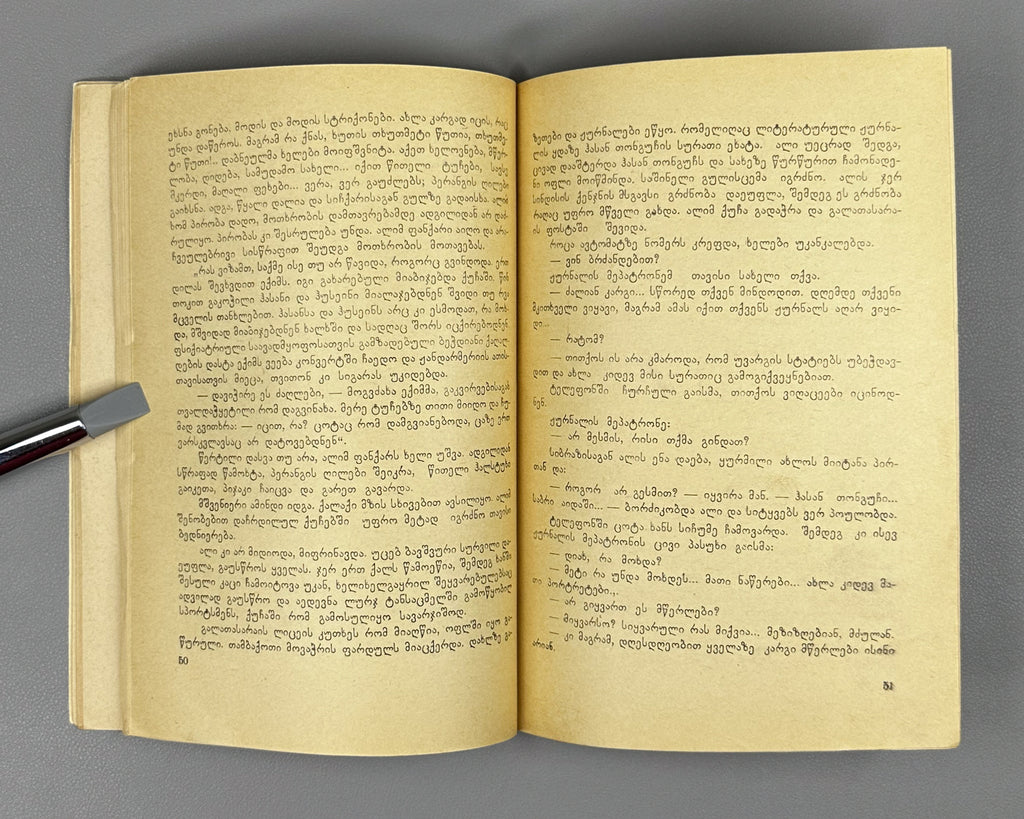 ეხსნა გონება. მოდის და მოდის სტრიქონები. ახლა კარგად იცის, რაც
უნდა დაწეროს. მაგრამ რა ქნას, ხუთის თხუთმეტი წუთია, თხუთმე-
ტი წუთი!.. დაბნეულმა ხელები მოიფშვნიტა. აქეთ ხელოვნება, მწერ-
ლობა, დიდება, სამუდამო სახელი... იქით წითელი ტუჩები, სავსე
მკერდი, მაღალი ფეხები... ვერა, ვერ გაუძლებს, პერანგის ღილები
გაიხსნა. ადგა, წყალი დალია და სიჩქარისაგან გულზე გადაისხა. ალიმ
ხომ პირობა დადო, მოთხრობის დამთავრებამდე ადგილიდან არ დაძ-
რულიყო. პირობას კი შესრულება უნდა. ალიმ ფანქარი აიღო და არა-
ჩვეულებრივი სისწრაფით შეუდგა მოთხრობის მოთავებას.
„რას ვიზამთ, საქმე ისე თუ არ წავიდა, როგორც გვინდოდა. ერთ
დილას შევხვდით ექიმს. იგი გახარებული მიაბიჯებდა ქუჩაში.
თოკით გაკოჭილი ჰასანი და ჰუსეინი მიალაჯებდნენ შვიდი თუ რვა
მცველის თანხლებით. ჰასანსა და ჰუსეინს არც კი ესმოდათ, რა მოხ-
და, მშვიდად მიაბიჯებდნენ ხალხში და სადღაც შორს იცქირებოდნენ.
ფსიქიატრიული საავადმყოფოსათვის გამზადებული ბეჭდიანი ქაღალ-
დების დასტა ექიმს ვეება კონვერტში ჩაედო და ჟანდარმერიის ათის-
თავისათვის მიეცა, თვითონ კი სიგარას უკიდებდა.
— დავიჭირე ეს ძაღლები, — მოგვძახა ექიმმა, გაკვირვებისაგან
თვალდაჭყეტილი რომ დაგვინახა. მერე ტუჩებზე თითი მიიდო და ჩუ-
მად გვითხრა: — იცით, რა? ცოტაც რომ დამგვიანებოდა, ცაზე ერთ
ვარსკვლავსაც არ დატოვებდნენ“.
წერტილი დასვა თუ არა, ალიმ ფანქარს ხელი უშვა. ადგილიდან
სწრაფად წამოხტა, პერანგის ღილები შეიკრა, წითელი ჰალსტუხი
გაიკეთა, პიჯაკი ჩაიცვა და გარეთ გავარდა.
მშვენიერი ამინდი იდგა. ქალაქი მზის სხივებით ავსილიყო. ალიმ
შენობებით დაჩრდილულ ქუჩებში უფრო მეტად იგრძნო თავისი
ბედნიერება.
ალი კი არ მიდიოდა, მიფრინავდა. უცებ ბავშვური სურვილი და-
ეუფლა, გაუსწროს ყველას. ჯერ ერთ ქალს წამოეწია, შემდეგ ხანში
შესული კაცი ჩამოიტოვა უკან, ხელიხელგაყრილ შეყვარებულებსაც
ადვილად გაუსწრო და აედევნა ლურჯ ტანსაცმელში გამოწყობილ
სპორტსმენს, ქუჩაში რომ გამოსულიყო სავარჯიშოდ.
გალათასარაის ლიცეის კუთხეს რომ მიაღწია, ოფლში იყო გა-
წურული. თამბაქოთი მოვაჭრის ფარდულს მიაცქერდა. დახლზე გა-
50
ზეთები და ჟურნალები ეწყო. რომელიღაც ლიტერატურული ჟურნა-
ლის ყდაზე ჰასან თონგუჩის სურათი ეხატა. ალი უეცრად შედგა,
ცივად დააშტერდა ჰასან თონგუჩს და სახეზე წურწურით ჩამონადე-
ნი ოფლი მოიწმინდა. საშინელი გულისცემა იგრძნო. ალის ჯერ
სინდისის ქენჯნის მსგავსი გრძნობა დაეუფლა, შემდეგ ეს გრძნობა
რაღაც უფრო მწველი გახდა. ალიმ ქუჩა გადაჭრა და გალათასარა-
ის ფოსტაში შევიდა.
როცა ავტომატზე ნომერს კრეფდა, ხელები უკანკალებდა.
— ვინ ბრძანდებით?
ჟურნალის მეპატრონემ თავისი სახელი თქვა.
— ძალიან კარგი... სწორედ თქვენ მინდოდით. დღემდე თქვენი
მკითხველი ვიყავი, მაგრამ ამას იქით თქვენს ჟურნალს აღარ ვიყი-
დი...
— რატომ?
— თითქოს ის არა კმაროდა, რომ უვარგის სტატიებს უბეჭდავ-
დით და ახლა კიდევ მისი სურათიც გამოგიქვეყნებიათ.
ტელეფონში ჩურჩული გაისმა, თითქოს ვიღაცეები იცინოდ-
ნენ.
ჟურნალის მეპატრონე:
— არ მესმის, რისი თქმა გინდათ?
სიბრაზისაგან ალის ენა დაება, ყურმილი ახლოს მიიტანა პირ-
თან და:
— როგორ არ გესმით? — იყვირა მან. — ჰასან თონგუჩი...
საბრი აიდანი... — ბორძიკობდა ალი და სიტყვებს ვერ პოულობდა.
ტელეფონში ცოტა ხანს სიჩუმე ჩამოვარდა. შემდეგ კი ისევ
ჟურნალის მეპატრონის ცივი პასუხი გაისმა:
— დიახ, რა მოხდა?
— მეტი რა უნდა მოხდეს... მათი ნაწერები... ახლა კიდევ მა-
თი პორტრეტები...
— არ გიყვართ ეს მწერლები?
— მიყვარსო? სიყვარული რას მიქვია... მეზიზღებიან, მძულან.
— კი მაგრამ, დღესდღეობით ყველაზე კარგი მწერლები ისინი
არიან.
51